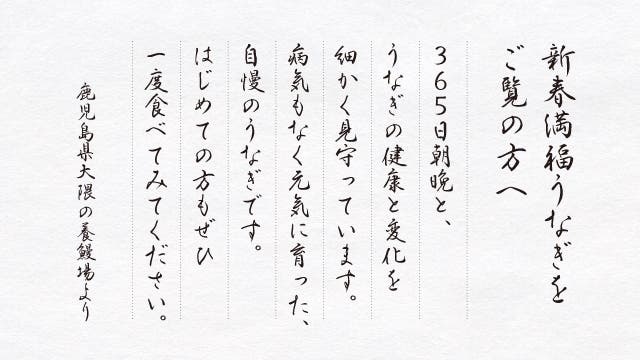 新春満福うなぎを
ご覧の方へ
365日朝晩と、
うなぎの健康と変化を
細かく見守っています。
病気もなく元気に育った、
自慢のうなぎです。
はじめての方もぜひ
一度食べてみてください。
鹿児島県大隈の養鰻場より